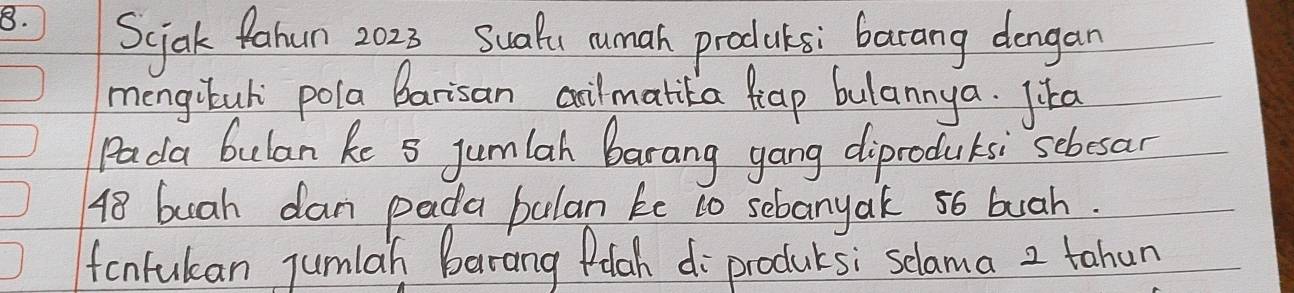 8. Sejak tahun 2023 suatu rumah produksi barang dengan
mengikuti pola barisan aritmatika tiap bulannya. Jika
Pada bulan ke 5 jumlah barang yang diproduksi sebesar
48 buah dan pada bulan ke 10 sebanyak 56 buah.
tentukan jumlah barang telah di produksi selama 2 tahun